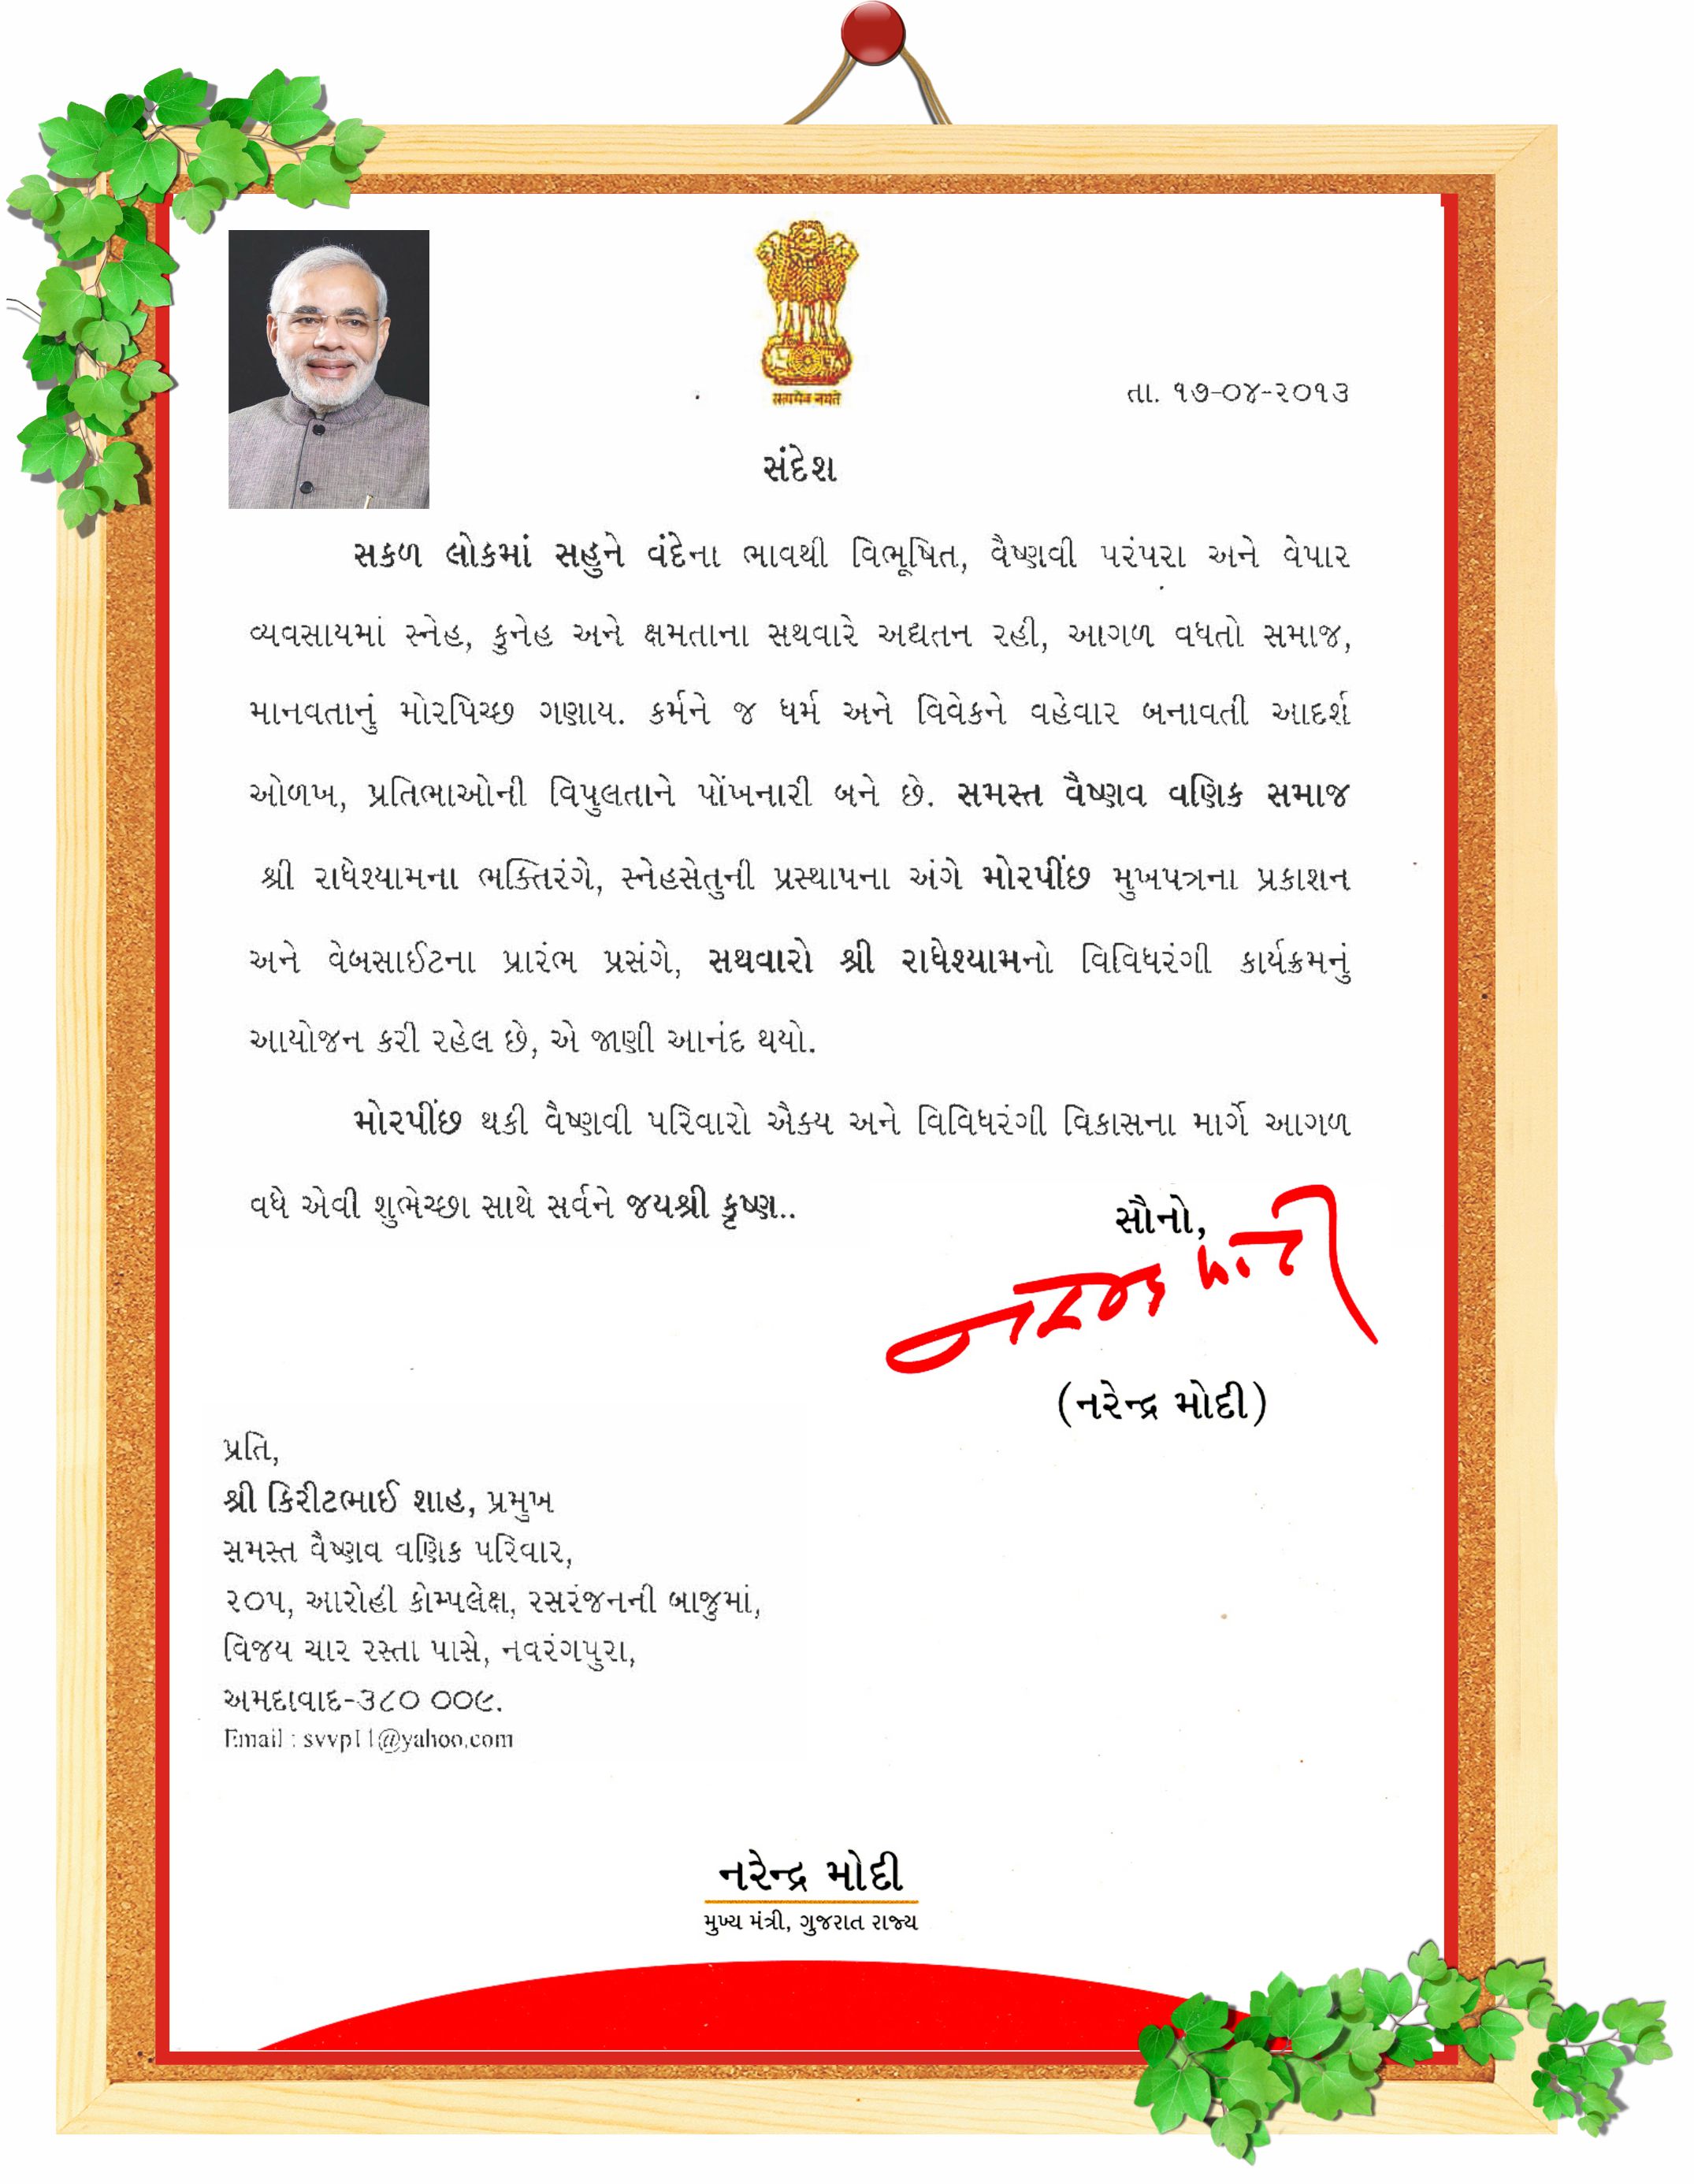 सत्यमेव जयते
તા. ૧૭-૦૪-૨૦૧૩
સંદેશ
સકળ લોકમાં સહુને વંદેના ભાવથી વિભૂષિત, વૈષ્ણવી પરંપરા અને વેપાર
વ્યવસાયમાં સ્નેહ, કુનેહ અને ક્ષમતાના સથવારે અદ્યતન રહી, આગળ વધતો સમાજ,
માનવતાનું મોરપિચ્છ ગણાય. કર્મને જ ધર્મ અને વિવેકને વહેવાર બનાવતી આદર્શ
ઓળખ, પ્રતિભાઓની વિપુલતાને પોંખનારી બને છે. સમસ્ત વૈષ્ણવ વણિક સમાજ
શ્રી રાધેશ્યામના ભક્તિરંગે, સ્નેહસેતુની પ્રસ્થાપના અંગે મોરપીંછ મુખપત્રના પ્રકાશન
અને વેબસાઈટના પ્રારંભ પ્રસંગે, સથવારો શ્રી રાધેશ્યામનો વિવિધરંગી કાર્યક્રમનું
આયોજન કરી રહેલ છે, એ જાણી આનંદ થયો.
મોરપીંછ થકી વૈષ્ણવી પરિવારો ઐક્ય અને વિવિધરંગી વિકાસના માર્ગે આગળ
વધે એવી શુભેચ્છા સાથે સર્વને જયશ્રી કૃષ્ણ..
સૌનો,
નરેન્દ્ર મોદી
(નરેન્દ્ર મોદી)
પ્રતિ,
શ્રી કિરીટભાઈ શાહ, પ્રમુખ
સમસ્ત વૈષ્ણવ વણિક પરિવાર,
૨૦૫, આરોહી કોમ્પલેક્ષ, રસરંજનની બાજુમાં,
વિજય ચાર રસ્તા પાસે, નવરંગપુરા,
અમદાવાદ-૩૮૦ ૦૦૯.
Email : svvp11@yahoo.com
નરેન્દ્ર મોદી
મુખ્ય મંત્રી, ગુજરાત રાજ્ય